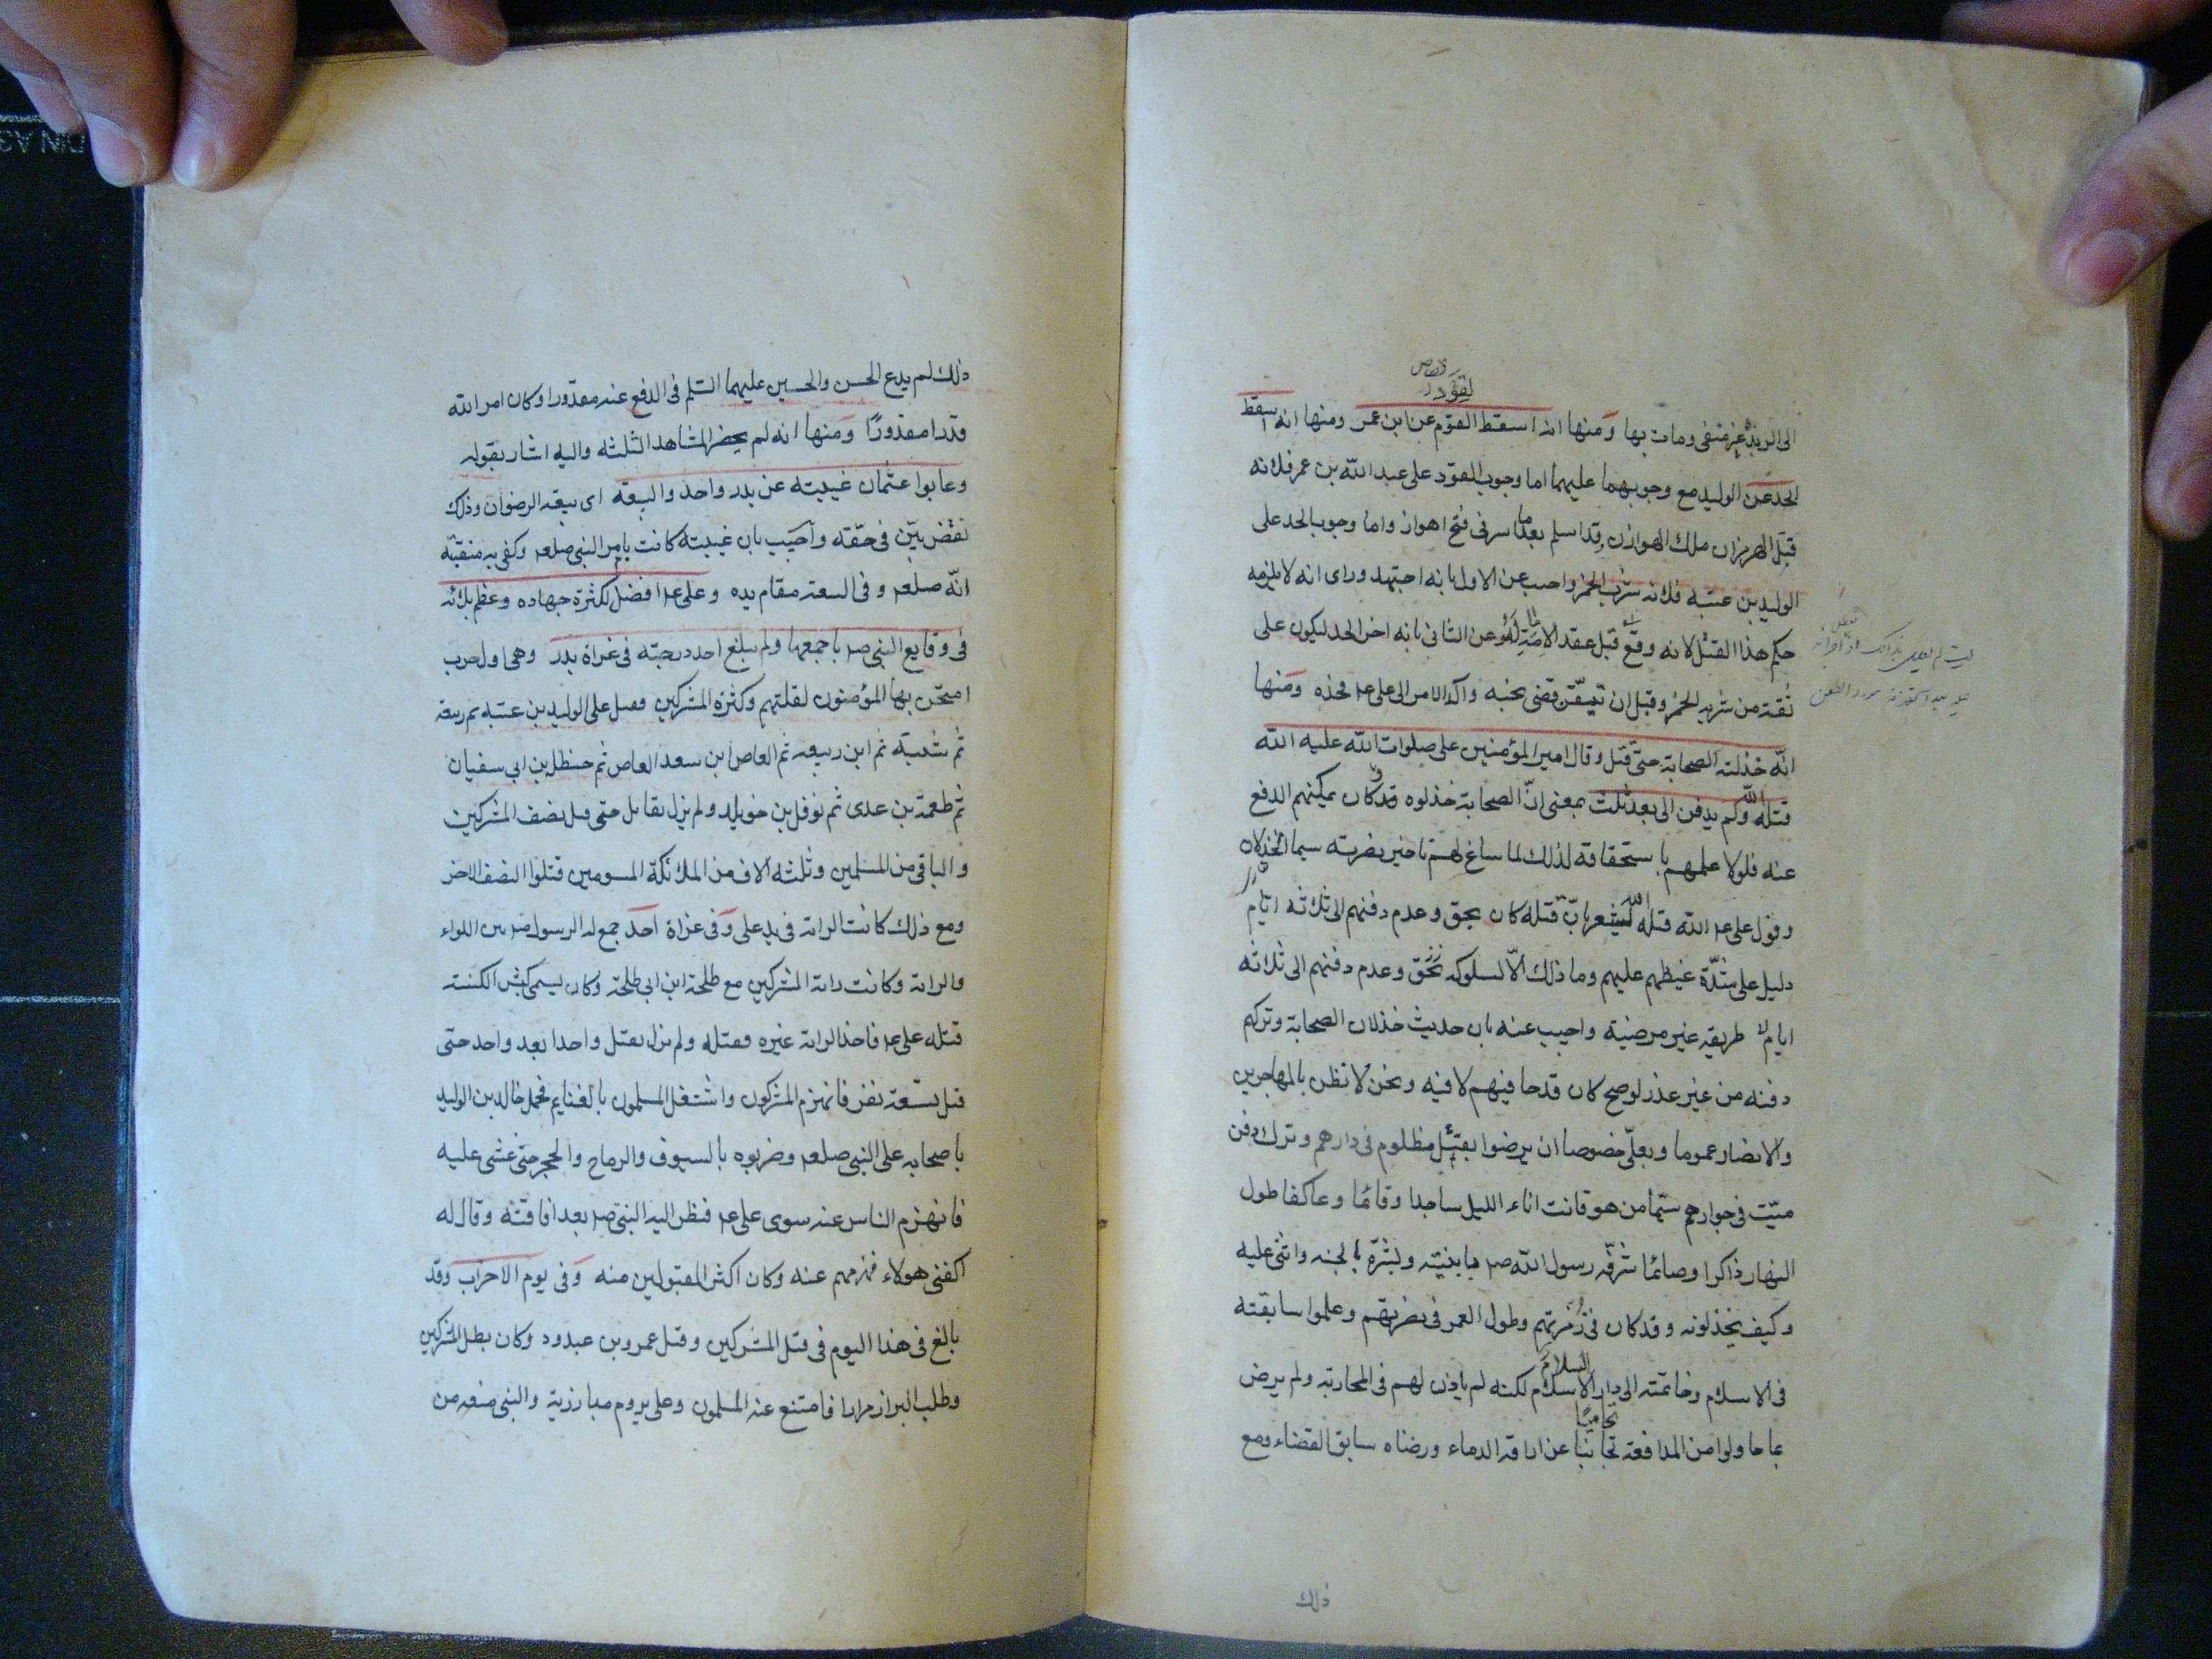 قصاص
لقود
الى الربذة غير منفى ومات بها ومنها انه اسقط القوم عن ابن عمر ومنها انه اسقط
الحد عن الوليد مع وجوبهما عليهما اما وجوب القود على عبد الله بن عمر فلانه
قتل الهرمزان ملك الهوازن وقد اسلم بعد ما اسر فى فتح اهواز واما وجوب الحد على
الوليد بن عتبه فلانه شرب الخمر واجيب عن الاول بانه اجتهد وراى انه لا يلزمه
حكم هذا القتل لانه وقع قبل عقد الامامة له وعن الثانى بانه اخر الحد ليكون على
ثقة من شربه الخمر وقبل ان تيقن قضى نحبه وآل الامر الى على عم فحده ومنها
انه خذلته الصحابة حتى قتل وقال امير المؤمنين على صلوات الله عليه الله
قتله ولم يدفن الى بعد ثلث بمعنى ان الصحابة خذلوه وقد كان يمكنهم الدفع
عنه فلولا علمهم باستحقاقه لذلك لما ساغ لهم تاخير نصرته سيما الخذلان
وقول على عم الله قتله ليشعر بان قتله كان بحق وعدم دفنهم الى ثلاثة ايام
دليل على شدة غيظهم عليهم وما ذلك الا لسلوكه نحق وعدم دفنهم الى ثلاثه
ايام لا طريقه غير مرضية واجيب عنه بان حديث خذلان الصحابة وتركهم
دفنه من غير عذر لو صح كان قدحا فيهم لا فيه ونحن لا نظن بالمهاجرين
والانصار عموما وبعلى خصوصا ان يرضوا بقتل مظلوم فى دارهم وترك دفن
ميت فى جوارهم سيما من هو قانت اناء الليل ساجدا وقائما وعاكفا طول
النهار ذاكرا وصائما شرفه رسول الله صم بابنتيه وبشره بالجنه واثنى عليه
وكيف يخذلونه وقد كان فى زمرتهم وطول العمر فى نصرتهم وعلموا سابقته
السلام
فى الاسلام وخاتمته الى دار الاسلام لكنه لم ياذن لهم فى المحاربة ولم يرض
تحاميا
بما حاولوا من المدافعة تجانبا عن اراقه الدماء ورضاه سابق القضاء ومع
ذلك
ذلك لم يدع الحسن والحسين عليهما السلم فى الدفع عنه مقدورا وكان امر الله
قدرا مقدورا ومنها انه لم يحضر المشاهد الثلثه واليه اشار بقوله
وعابوا عثمان غيبته عن بدر واحد والبيعة اى بيعه الرضوان وذلك
نقض بين فى حقه واجيب بان غيبته كانت بامر النبى صلعم وكفى به منقبة
انه صلعم وفى البيعه مقام يده وعلى عم افضل لكثرة جهاده وعظم بلائه
فى وقايع النبى صم باجمعها ولم يبلغ احد درجته فى غزاة بدر وهى اول حرب
امتحن بها المؤمنون لقلتهم وكثرة المشركين فقتل على الوليد بن عتبه ثم ربيعه
ثم شيبة ثم ابن ربيعه ثم العاص ابن سعد العاص ثم حنظل بن ابى سفيان
ثم طعمة بن عدى ثم نوفل بن خويلد ولم يزل يقاتل حتى قتل نصف المشركين
والباقى من المسلمين وثلثه الاف من الملائكة المسومين قتلوا النصف الاخر
ومع ذلك كانت الراية فى يد على وفى غزاة احد جمع له الرسول صم بين اللواء
والراية وكانت راية المشركين مع طلحة ابن ابى طلحة وكان يسمى كبش الكتيبه
قتله على عم فاخذ الراية غيره فقتله ولم يزل يقتل واحدا بعد واحد حتى
قتل تسعة نفر فانهزم المشركون واشتغل المسلمون بالغنايم فحمل خالد بن الوليد
باصحابه على النبى صلعم وضربوه بالسيوف والرماح والحجر حتى غشى عليه
فانهزم الناس عنه سوى على عم فنظر اليه النبى صم بعد افاقته وقال له
اكفنى هولاء فهزمهم عنه وكان اكثر المقتولين منه وفى يوم الاحزاب وقد
بالغ فى هذا اليوم فى قتل المشركين وقتل عمرو بن عبدود وكان بطل المشركين
وطلب البراز مرارا فامتنع عنه المسلمون وعلى يروم مبارزته والنبى منعه من
DIN A3